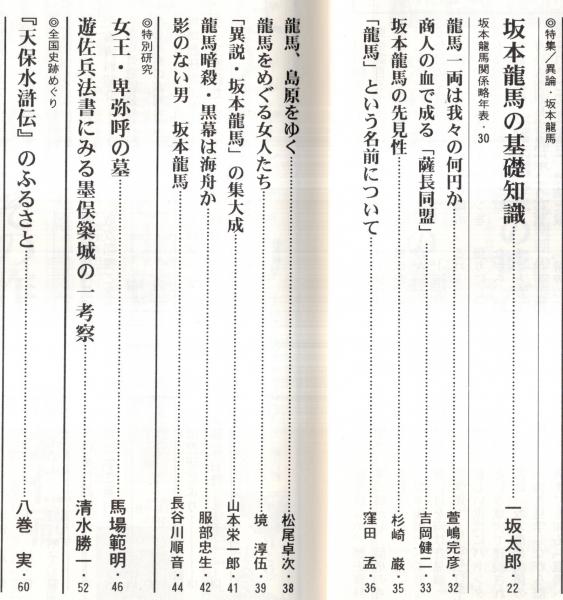 ◎特集／異論・坂本龍馬
坂本龍馬の基礎知識……一坂太郎・22
坂本龍馬関係略年表・30
龍馬一両は我々の何円か……萱嶋完彦・32
商人の血で成る「薩長同盟」……吉岡健二・33
坂本龍馬の先見性……杉崎 巌・35
「龍馬」という名前について……窪田 孟・36
龍馬、島原をゆく……松尾卓次・38
龍馬をめぐる女人たち……境 淳伍・39
「異説・坂本龍馬」の集大成……山本栄一郎・41
龍馬暗殺・黒幕は海舟か……服部忠生・42
影のない男 坂本龍馬……長谷川順音・44
◎特別研究
女王・卑弥呼の墓……馬場範明・46
遊佐兵法書にみる墨俣築城の一考察……清水勝一・52
◎全国史跡めぐり
『天保水滸伝』のふるさと……八巻 実・60